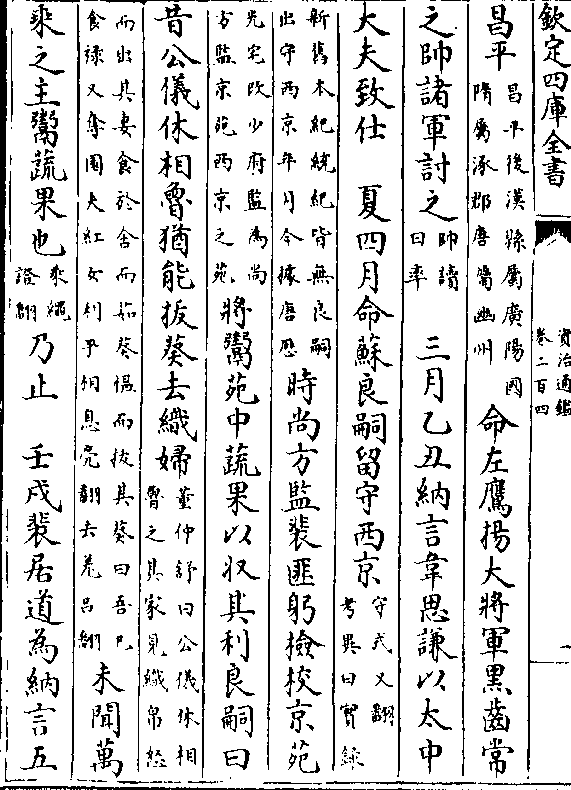 欽定四庫全書
資治通鑑
卷二百四
一
昌平
昌平後漢縣屬廣陽國
隋屬涿郡唐屬幽州
命左鷹揚大將軍黑齒常
之帥諸軍討之
帥讀
曰率
三月乙丑納言韋思謙以太中
大夫致仕　夏四月命蘇良嗣留守西京
守式又翻
考異曰實録
新舊本紀統紀皆無良嗣
出守西京年月今據唐歷
時尚方監裴匪躬檢校京苑
光宅改少府監為尚
方監京苑西京之苑
將鬻苑中蔬果以収其利良嗣曰
昔公儀休相魯猶能拔葵去織婦
董仲舒曰公儀休相
魯之其家見織帛怒
而出其妻食於舍而茹葵愠而拔其葵曰吾已
食禄又奪園夫紅女利乎相息亮翻去羌呂翻
未聞萬
乘之主鬻蔬果也
乘繩
證翻
乃止　壬戌裴居道為納言五